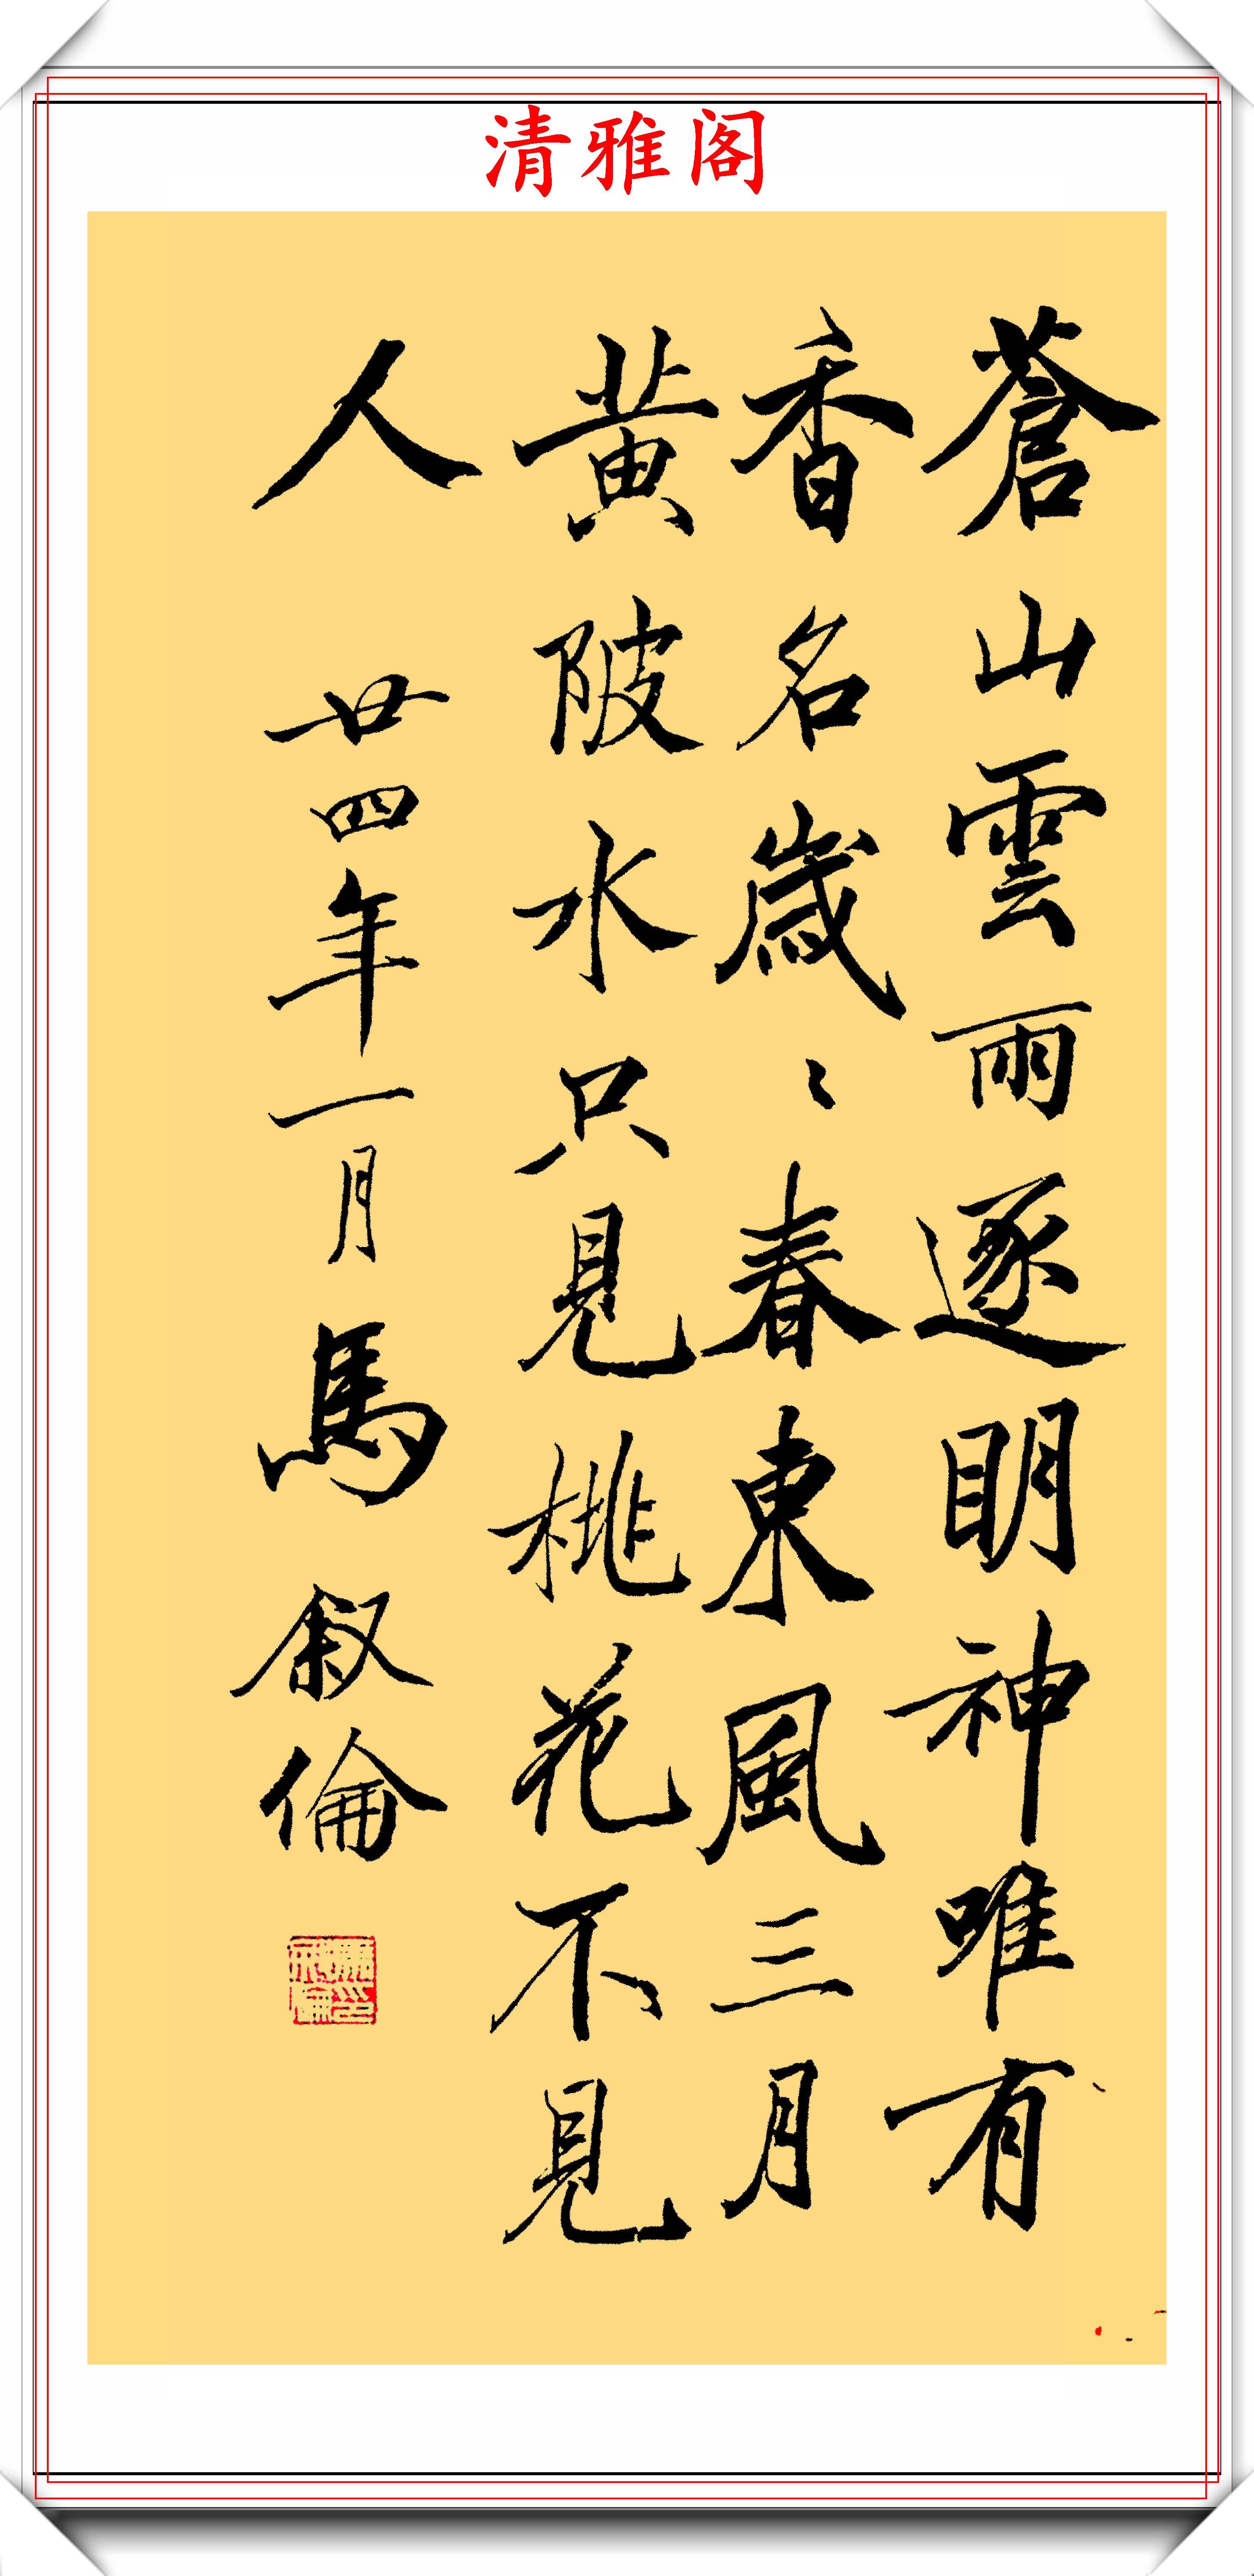 清雅阁
蒼山雲雨逐明神唯有
香名歲〻春東風三月
黃陂水只見桃花不見
人
廿四年一月馬叙倫